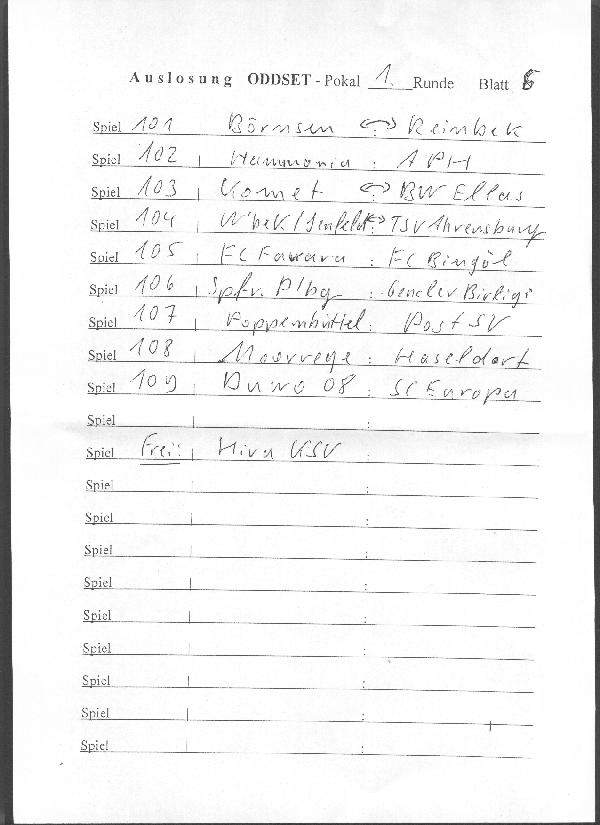 Auslosung ODDSET - Pokal 1. Runde Blatt 6
Spiel 101 Börnsen <-> Reinbek
Spiel 102 Hammonia : 1 PH
Spiel 103 Komet <-> BW Ellas
Spiel 104 W'bek/Jenfeld <-> TSV Ahrensburg
Spiel 105 FC Fawara : FC Bingöl
Spiel 106 Spfr. Plbg : Gencler Birligi
Spiel 107 Poppenbüttel : Post SV
Spiel 108 Moorrege : Haseldorf
Spiel 109 Duwo 08 : SC Europa
Spiel :
Spiel Frei: Miva KSV
Spiel :
Spiel :
Spiel :
Spiel :
Spiel :
Spiel :
Spiel :
Spiel :
Spiel :